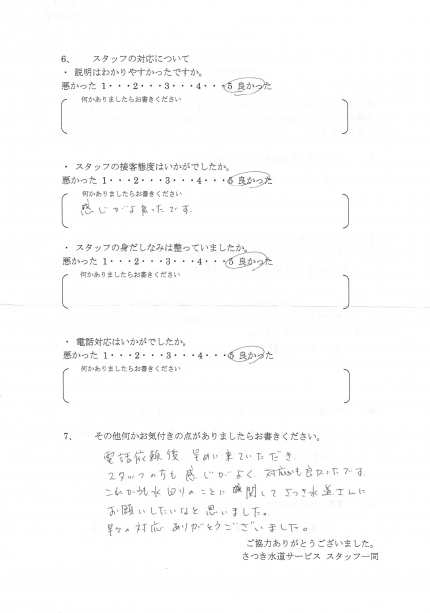 6、　スタッフの対応について
・ 説明はわかりやすかったですか。
悪かった 1・・・2・・・3・・・4・・・5 良かった
何かありましたらお書きください
・ スタッフの接客態度はいかがでしたか。
悪かった 1・・・2・・・3・・・4・・・5 良かった
何かありましたらお書きください
感じがよ良ったです.
・ スタッフの身だしなみは整っていましたか。
悪かった 1・・・2・・・3・・・4・・・5 良かった
何かありましたらお書きください
・ 電話対応はいかがでしたか。
悪かった 1・・・2・・・3・・・4・・・5 良かった
何かありましたらお書きください
7、　その他何かお気付きの点がありましたらお書きください。
電話依頼後、早めに来ていただき、
スタッフの方も感じがよく、対応も良かったです.
これからも水回りのことに関してさつき水道さんに
お願いしたいなと思いました。
早々の対応ありがとうございました。
ご協力ありがとうございました。
さつき水道サービス スタッフ一同